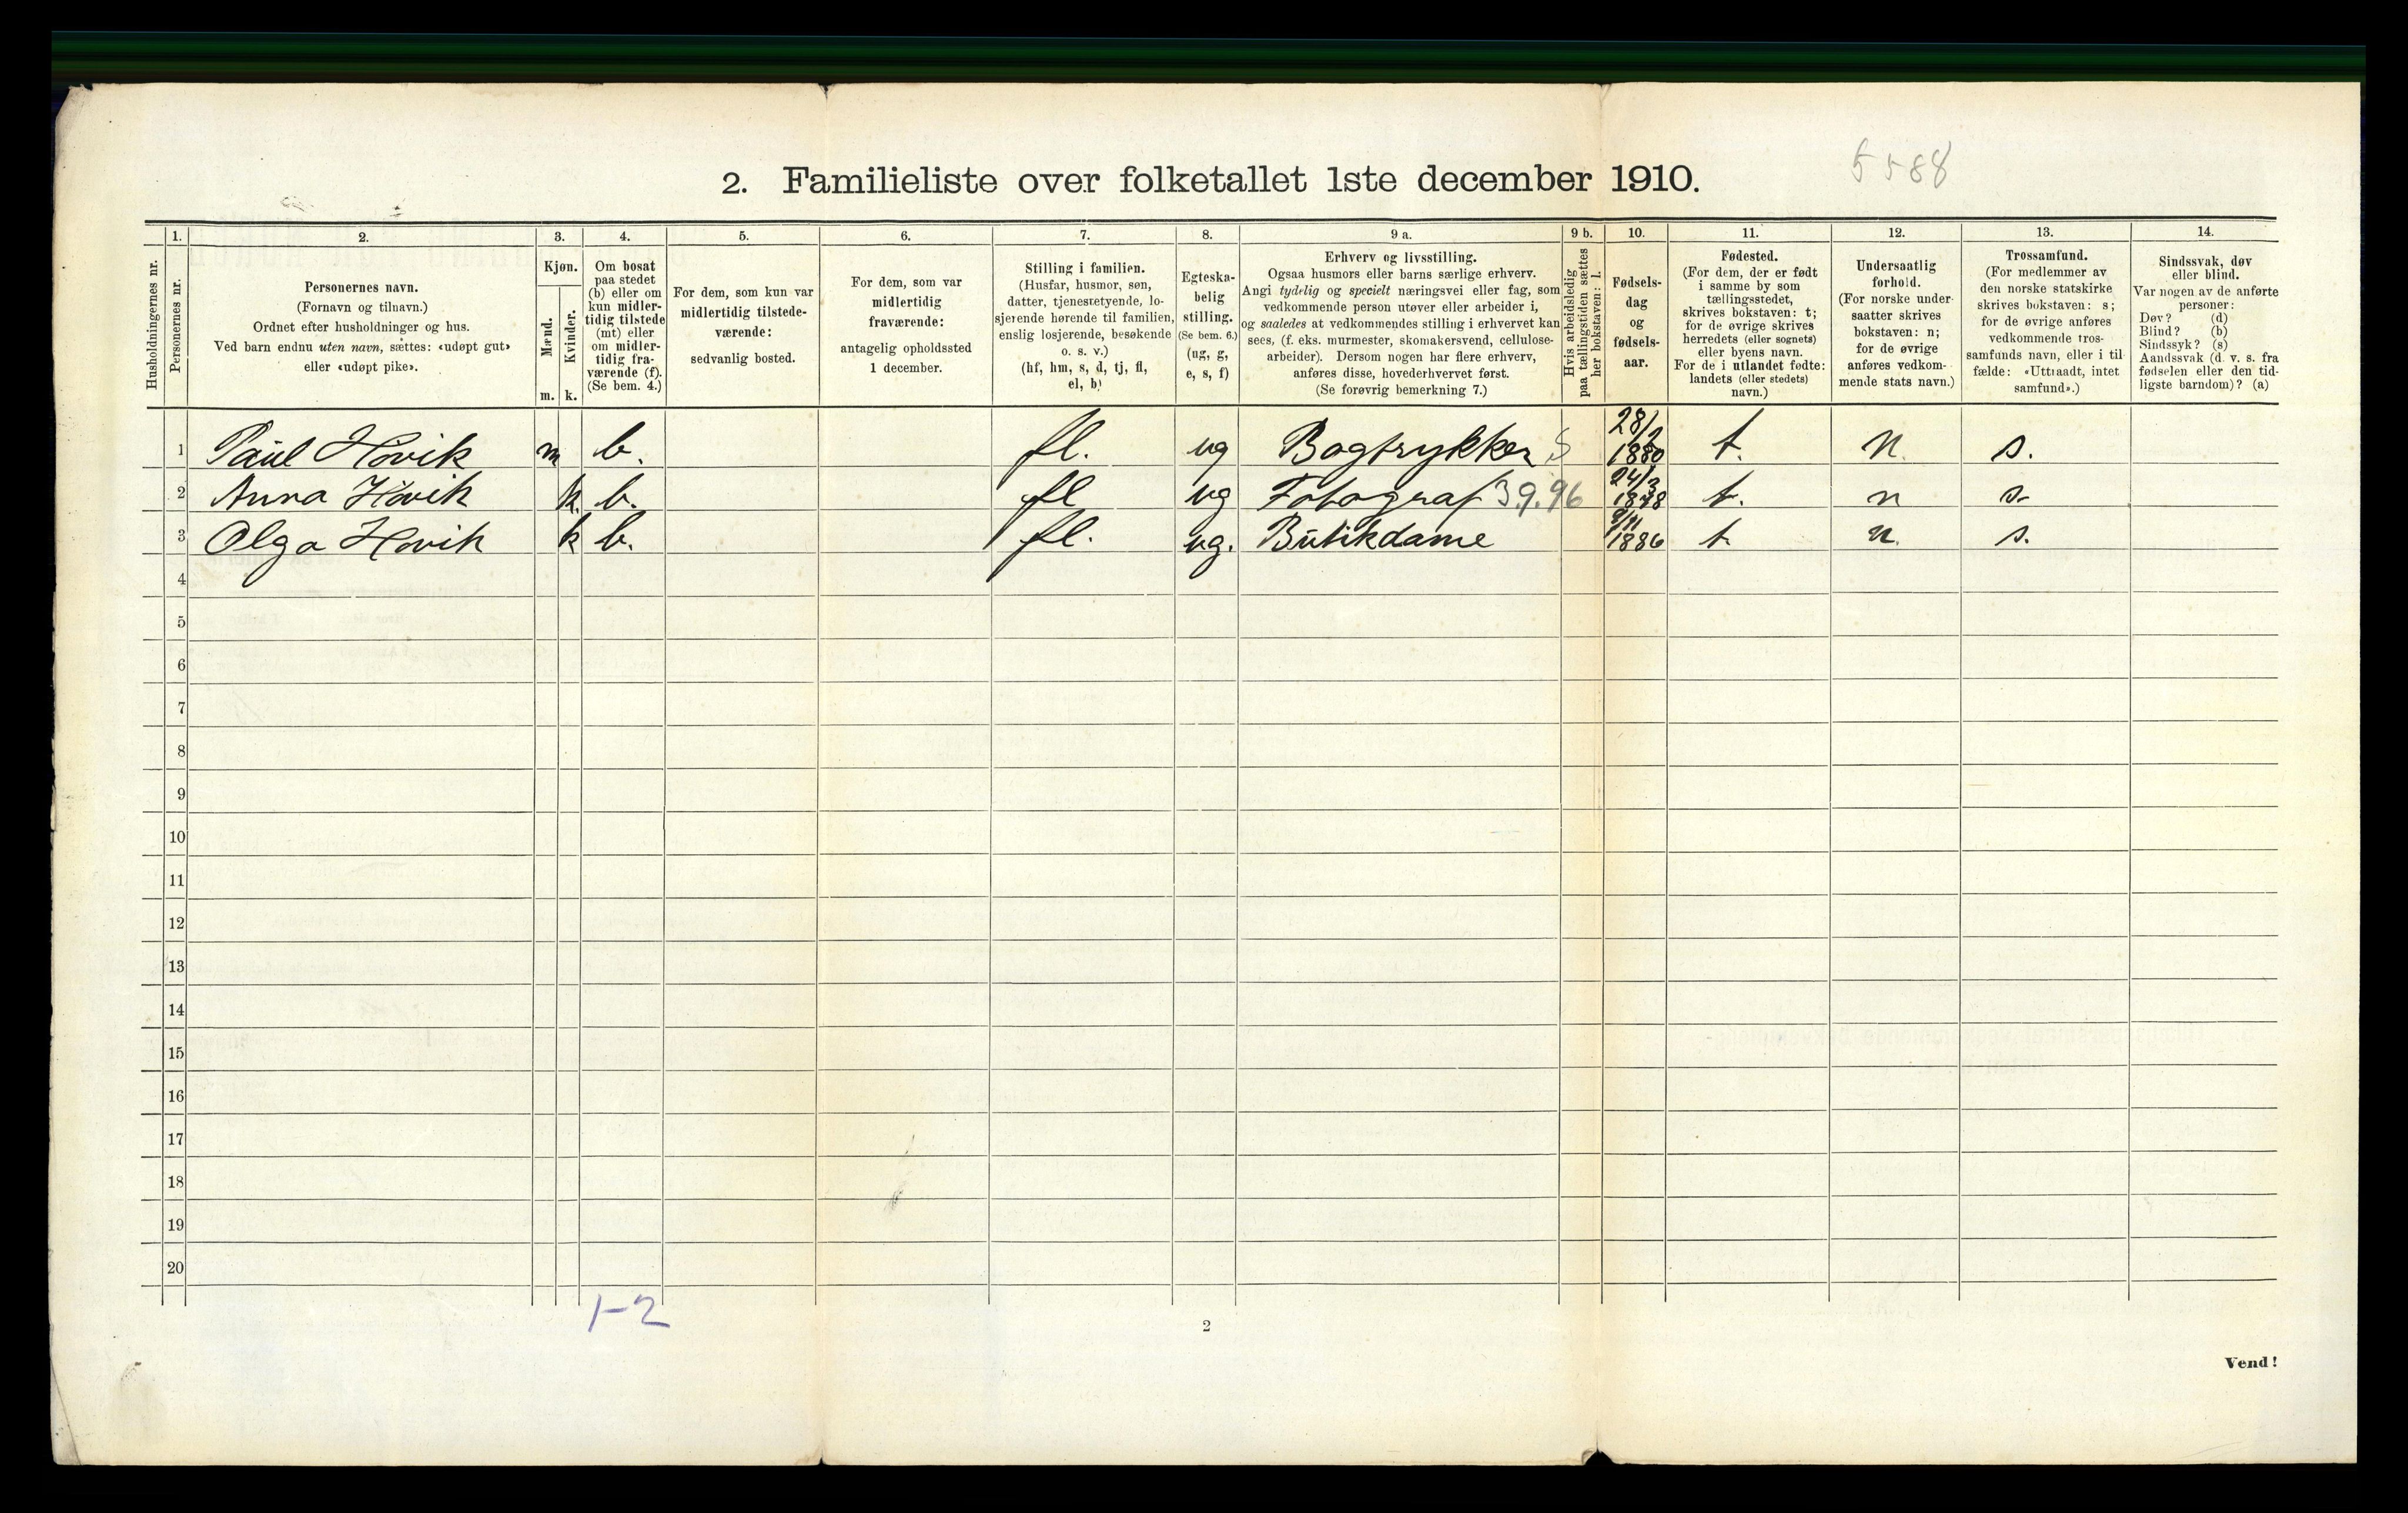 5588
2. Familieliste over folketallet 1ste december 1910.
Husholdningernes nr.
1.
Personernes nr.
2.
Personernes navn.
(Fornavn og tilnavn.)
Ordnet efter husholdninger og hus.
Ved barn endnu uten navn, sættes: «udøpt gut»
eller «udøpt pike».
3.
Kjøn.
Mænd.
Kvinder.
m. k.
4.
Om bosat
paa stedet
(b) eller om
kun midler-
tidig tilstede
(mt) eller
om midler-
tidig fra-
værende (f).
(Se bem. 4.)
5.
For dem, som kun var
midlertidig tilstede-
værende:
sedvanlig bosted.
6.
For dem, som var
midlertidig
fraværende:
antagelig opholdssted
1 december.
7.
Stilling i familien.
(Husfar, husmor, søn,
datter, tjenestetyende, lo-
sjerende hørende til familien,
enslig losjerende, besøkende
o. s. v.)
(hf, hm, s, d, tj, fl,
el, b)
8.
Egteska-
belig
stilling.
(Se bem. 6.)
(ug, g,
e, s, f)
9 a.
Erhverv og livsstilling.
Ogsaa husmors eller barns særlige erhverv.
Angi tydelig og specielt næringsvei eller fag, som
vedkommende person utøver eller arbeider i,
og saaledes at vedkommendes stilling i erhvervet kan
sees, (f. eks. murmester, skomakersvend, cellulose-
arbeider). Dersom nogen har flere erhverv,
anføres disse, hovederhvervet først.
(Se forøvrig bemerkning 7.)
9 b.
Hvis arbeidsledig
paa tællingstiden sættes
her bokstaven: l.
10.
Fødsels-
dag
og
fødsels-
aar.
11.
Fødested.
(For dem, der er født
i samme by som
tællingsstedet,
skrives bokstaven: t;
for de øvrige skrives
herredets (eller sognets)
eller byens navn.
For de i utlandet fødte:
landets (eller stedets)
navn.)
12.
Undersaatlig
forhold.
(For norske under-
saatter skrives
bokstaven: n;
for de øvrige
anføres vedkom-
mende stats navn.)
13.
Trossamfund.
(For medlemmer av
den norske statskirke
skrives bokstaven: s;
for de øvrige anføres
vedkommende tros-
samfunds navn, eller i til-
fælde: «Uttraadt, intet
samfund».)
14.
Sindssvak, døv
eller blind.
Var nogen av de anførte
personer:
Døv? (d)
Blind? (b)
Sindssyk? (s)
Aandssvak (d. v. s. fra
fødselen eller den tid-
ligste barndom)? (a)
1 Paul Hovik m b. fl. ug Bogtrykker S 28/2 1880 t. n. s.
2 Anna Hovik k. b. fl ug Fotograf 39.96 24/3 1878 t. n s.
3 Olga Hovik k b. fl. ug. Butikdame 9/11 1886 t. n. s.
4
5
6
7
8
9
10
11
12
13
14
15
16
17
18
19
20
1-2
2
Vend!